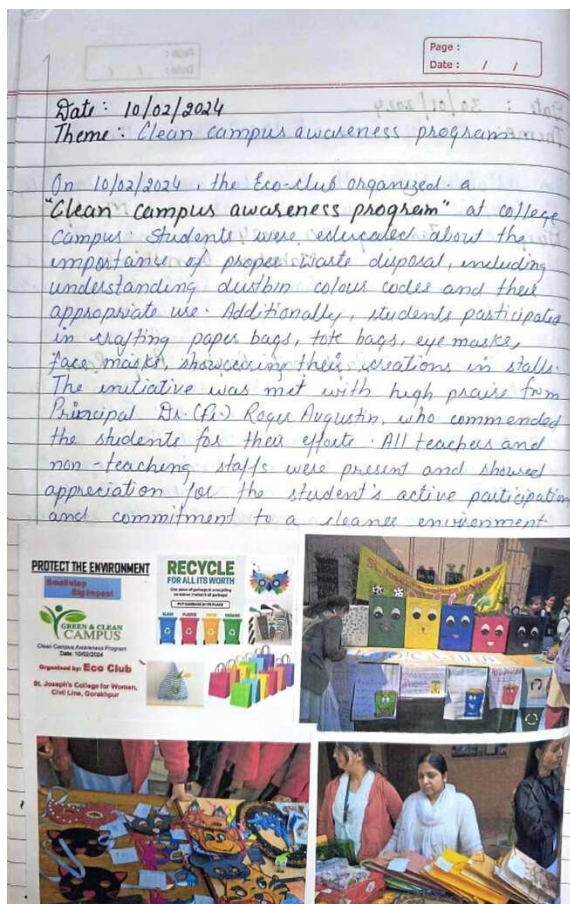 Page :
Date : / /
Date: 10/02/2024
Theme: Clean campus awareness program
On 10/02/2024, the Eco-club organized a
"Clean campus awareness program" at college
campus. Students were educated about the
importance of proper waste disposal, including
understanding dustbin colour codes and their
appropriate use. Additionally, students participated
in crafting paper bags, tote bags, eye masks,
face masks, showcasing their creations in stalls.
The initiative was met with high praise from
Principal Dr. (Fr.) Roger Augustin, who commended
the students for their efforts. All teachers and
non-teaching staffs were present and showed
appreciation for the student's active participation
and commitment to a cleaner environment
PROTECT THE ENVIRONMENT
Small step
Big Impact
GREEN & CLEAN
CAMPUS
Clean Campus Awareness Program
Date: 10/02/2024
Organised by: Eco Club
St. Joseph's College for Women,
Civil Line, Gorakhpur
RECYCLE
FOR ALL ITS WORTH
GLASS PLASTIC PAPER ORGANIC
St. Joseph's